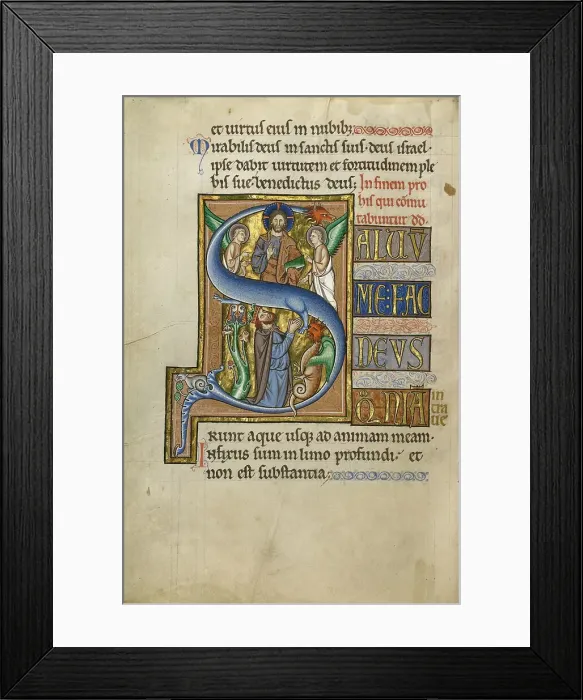 et uirtus eius in nubibꝫ
Mirabilis deus in sanctis suis · deus israel ·
ipse dabit uirtutem et fortitudinem ple
bis sue · benedictus deus;
In finem pro
bis qui cōmu
tabuntur dd.
S
ALUŪ
ME: FAC
DEUS
Q̄NIA in
tra
ue
runt aque usqꝫ ad animam meam ·
Infixus sum in limo profundi · et
non est substantia